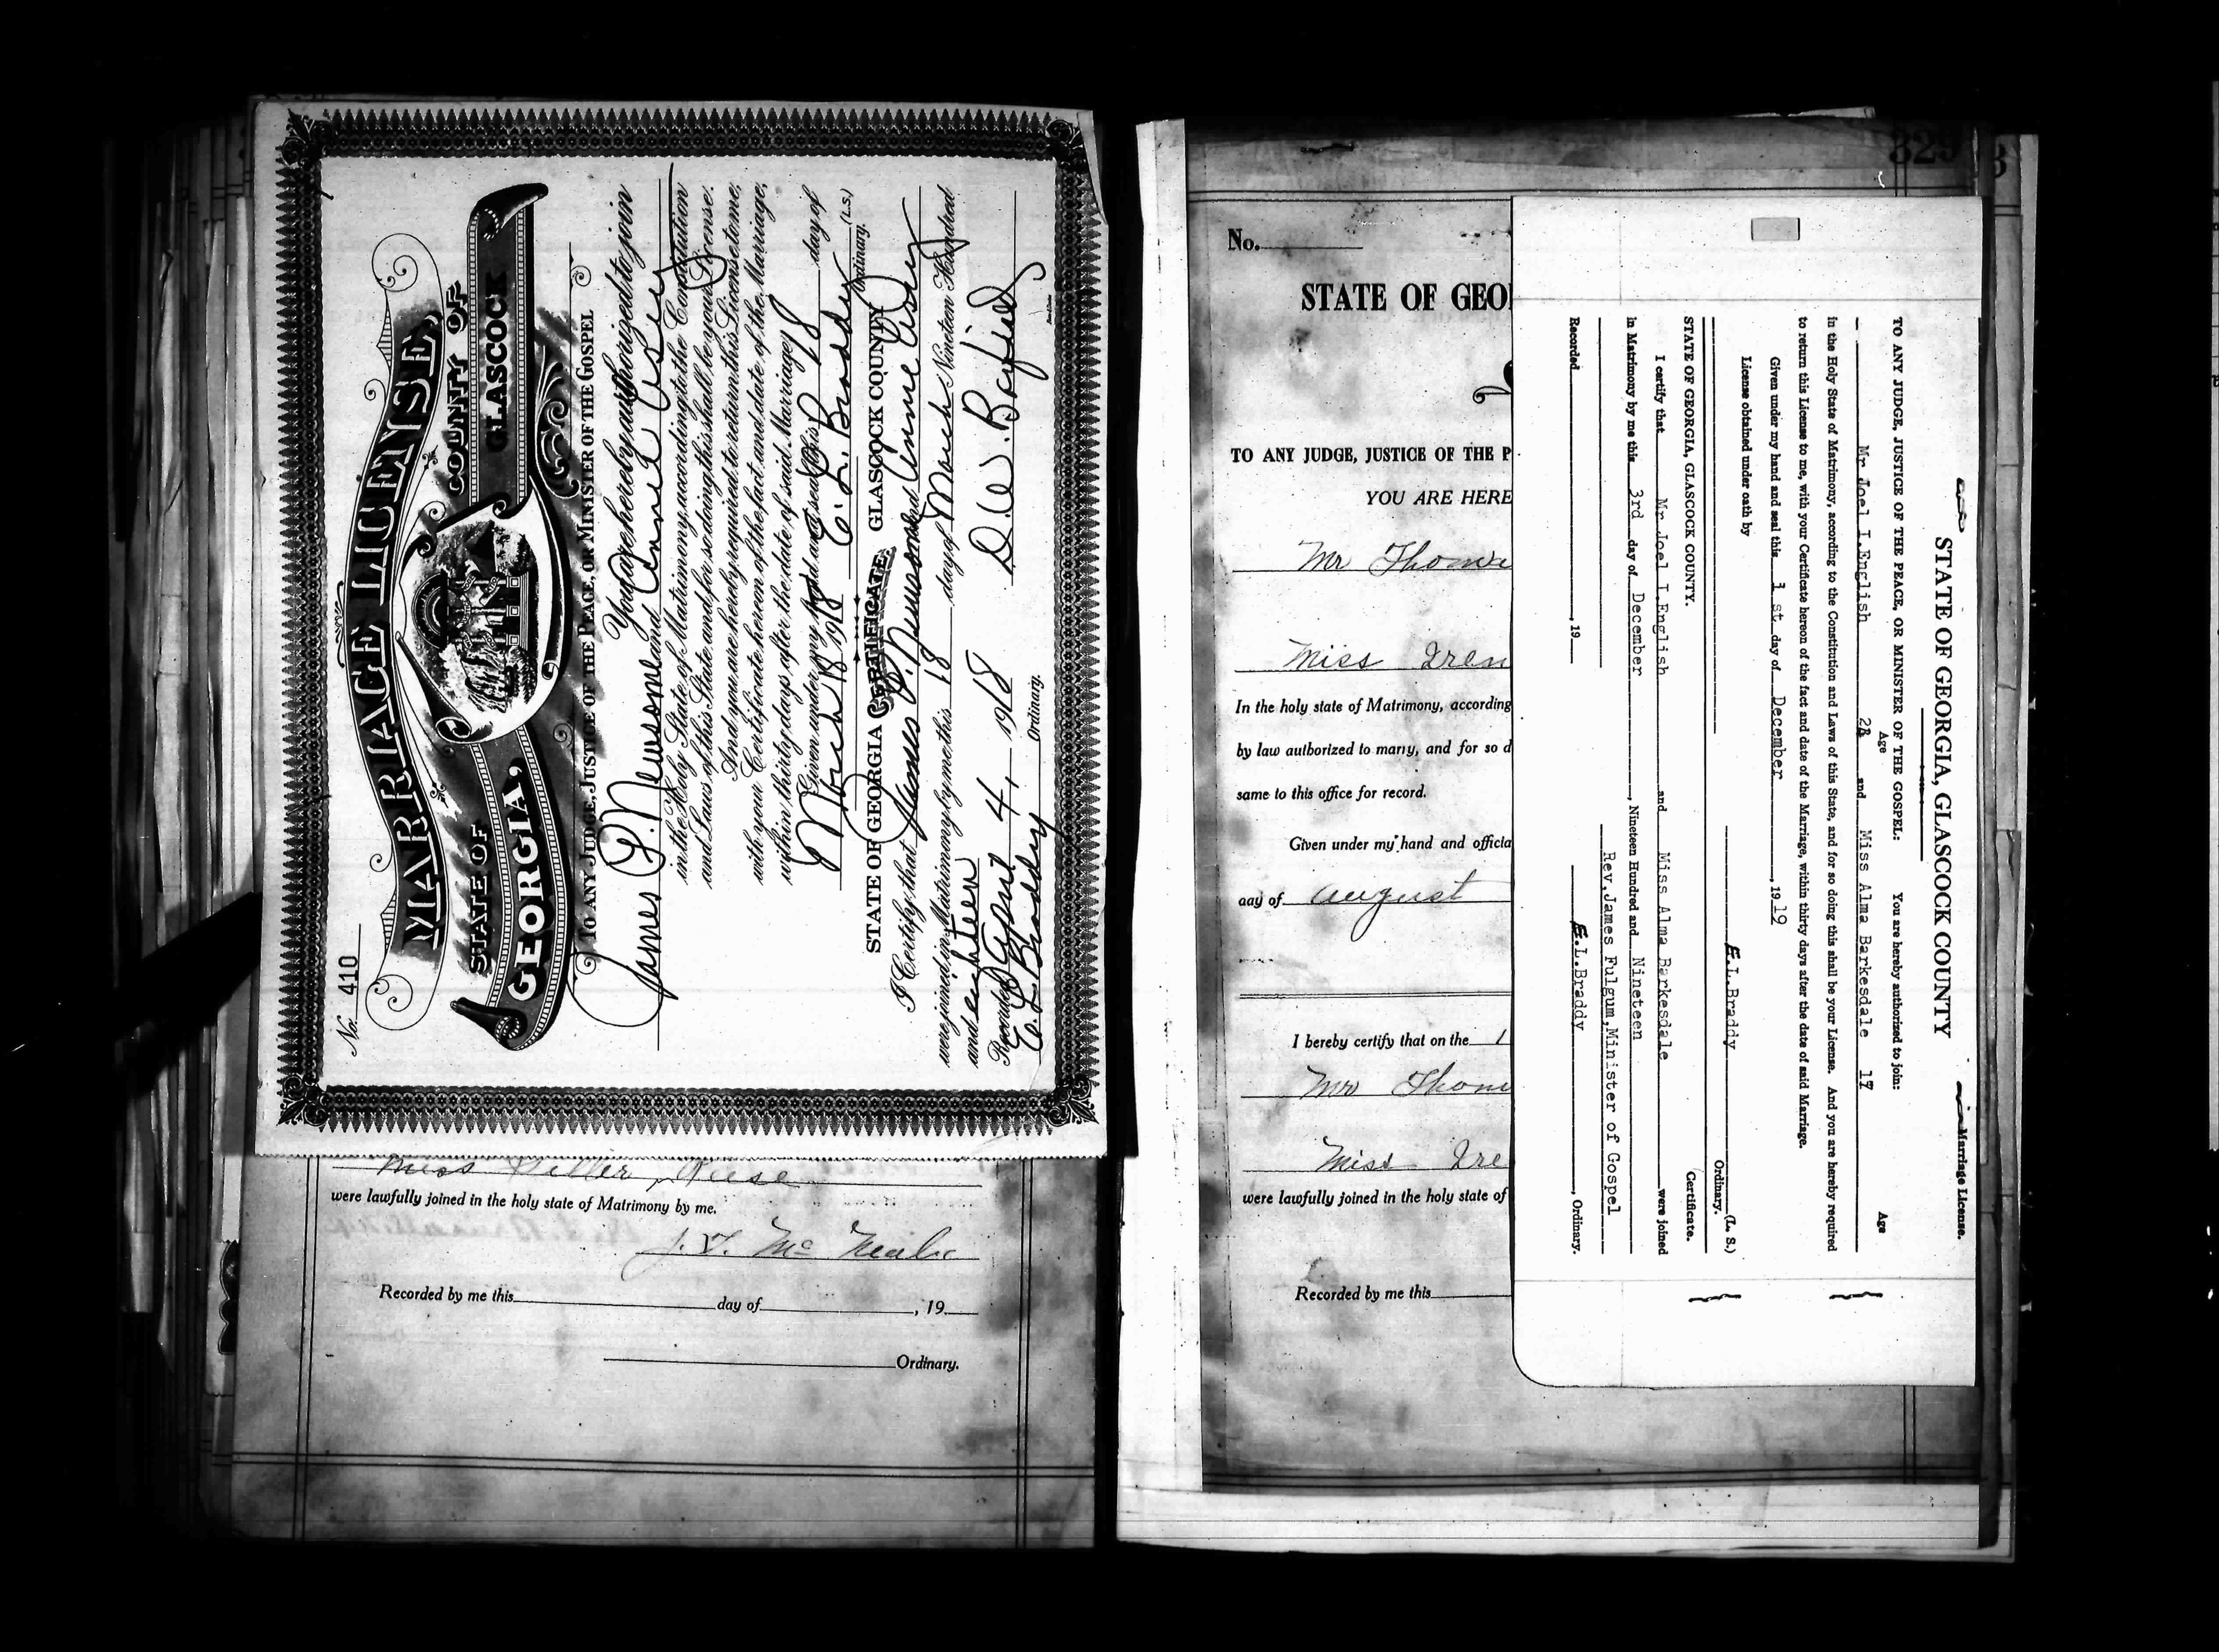 No. 410
MARRIAGE LICENSE,
STATE OF
GEORGIA,
COUNTY OF
GLASCOCK
TO ANY JUDGE, JUSTICE OF THE PEACE, OR MINISTER OF THE GOSPEL
You are hereby authorized to join
James P. Newsome and Annie Usry
in the Holy State of Matrimony, according to the Constitution
and Laws of this State, and for so doing this shall be your License.
And you are hereby required to return this License to me,
with your Certificate hereon of the fact and date of the Marriage,
within thirty days after the date of said Marriage
Given under my hand and seal this 18 day of
March 18 1918 E. L. Braddy (L.S.)
Ordinary.
CERTIFICATE
STATE OF GEORGIA GLASCOCK COUNTY
I Certify, that James P. Newsome and Annie Usry
were joined in Matrimony by me this 18 day of March Nineteen Hundred
and eighteen D. W. Bayfield
Recorded April 4, 1918
E. L. Braddy Ordinary.
Miss Reese
were lawfully joined in the holy state of Matrimony by me.
J. T. Mc
Recorded by me this day of , 19
Ordinary.
329
No.
STATE OF GEOR
TO ANY JUDGE, JUSTICE OF THE P
YOU ARE HERE
Mr Thoma
Miss Iren
In the holy state of Matrimony, according
by law authorized to marry, and for so d
same to this office for record.
Given under my hand and officia
day of August
I hereby certify that on the 1
Mr Thom
Miss Ire
were lawfully joined in the holy state of
Recorded by me this
STATE OF GEORGIA, GLASCOCK COUNTY
Marriage License.
TO ANY JUDGE, JUSTICE OF THE PEACE, OR MINISTER OF THE GOSPEL: You are hereby authorized to join:
Age Age
Mr Joel I.English and Miss Alma Barkesdale 17
in the Holy State of Matrimony, according to the Constitution and Laws of this State, and for so doing this shall be your License. And you are hereby required
to return this License to me, with your Certificate hereon of the fact and date of the Marriage, within thirty days after the date of said Marriage.
Given under my hand and seal this 1 st day of December , 1919
License obtained under oath by
E.L.Braddy (L. S.)
Ordinary.
STATE OF GEORGIA, GLASCOCK COUNTY. Certificate.
I certify that Mr Joel I.English and Miss Alma Barkesdale were joined
in Matrimony by me this 3rd day of December , Nineteen Hundred and Nineteen
Rev.James Fulgum,Minister of Gospel
Recorded , 19 E.L.Braddy , Ordinary.